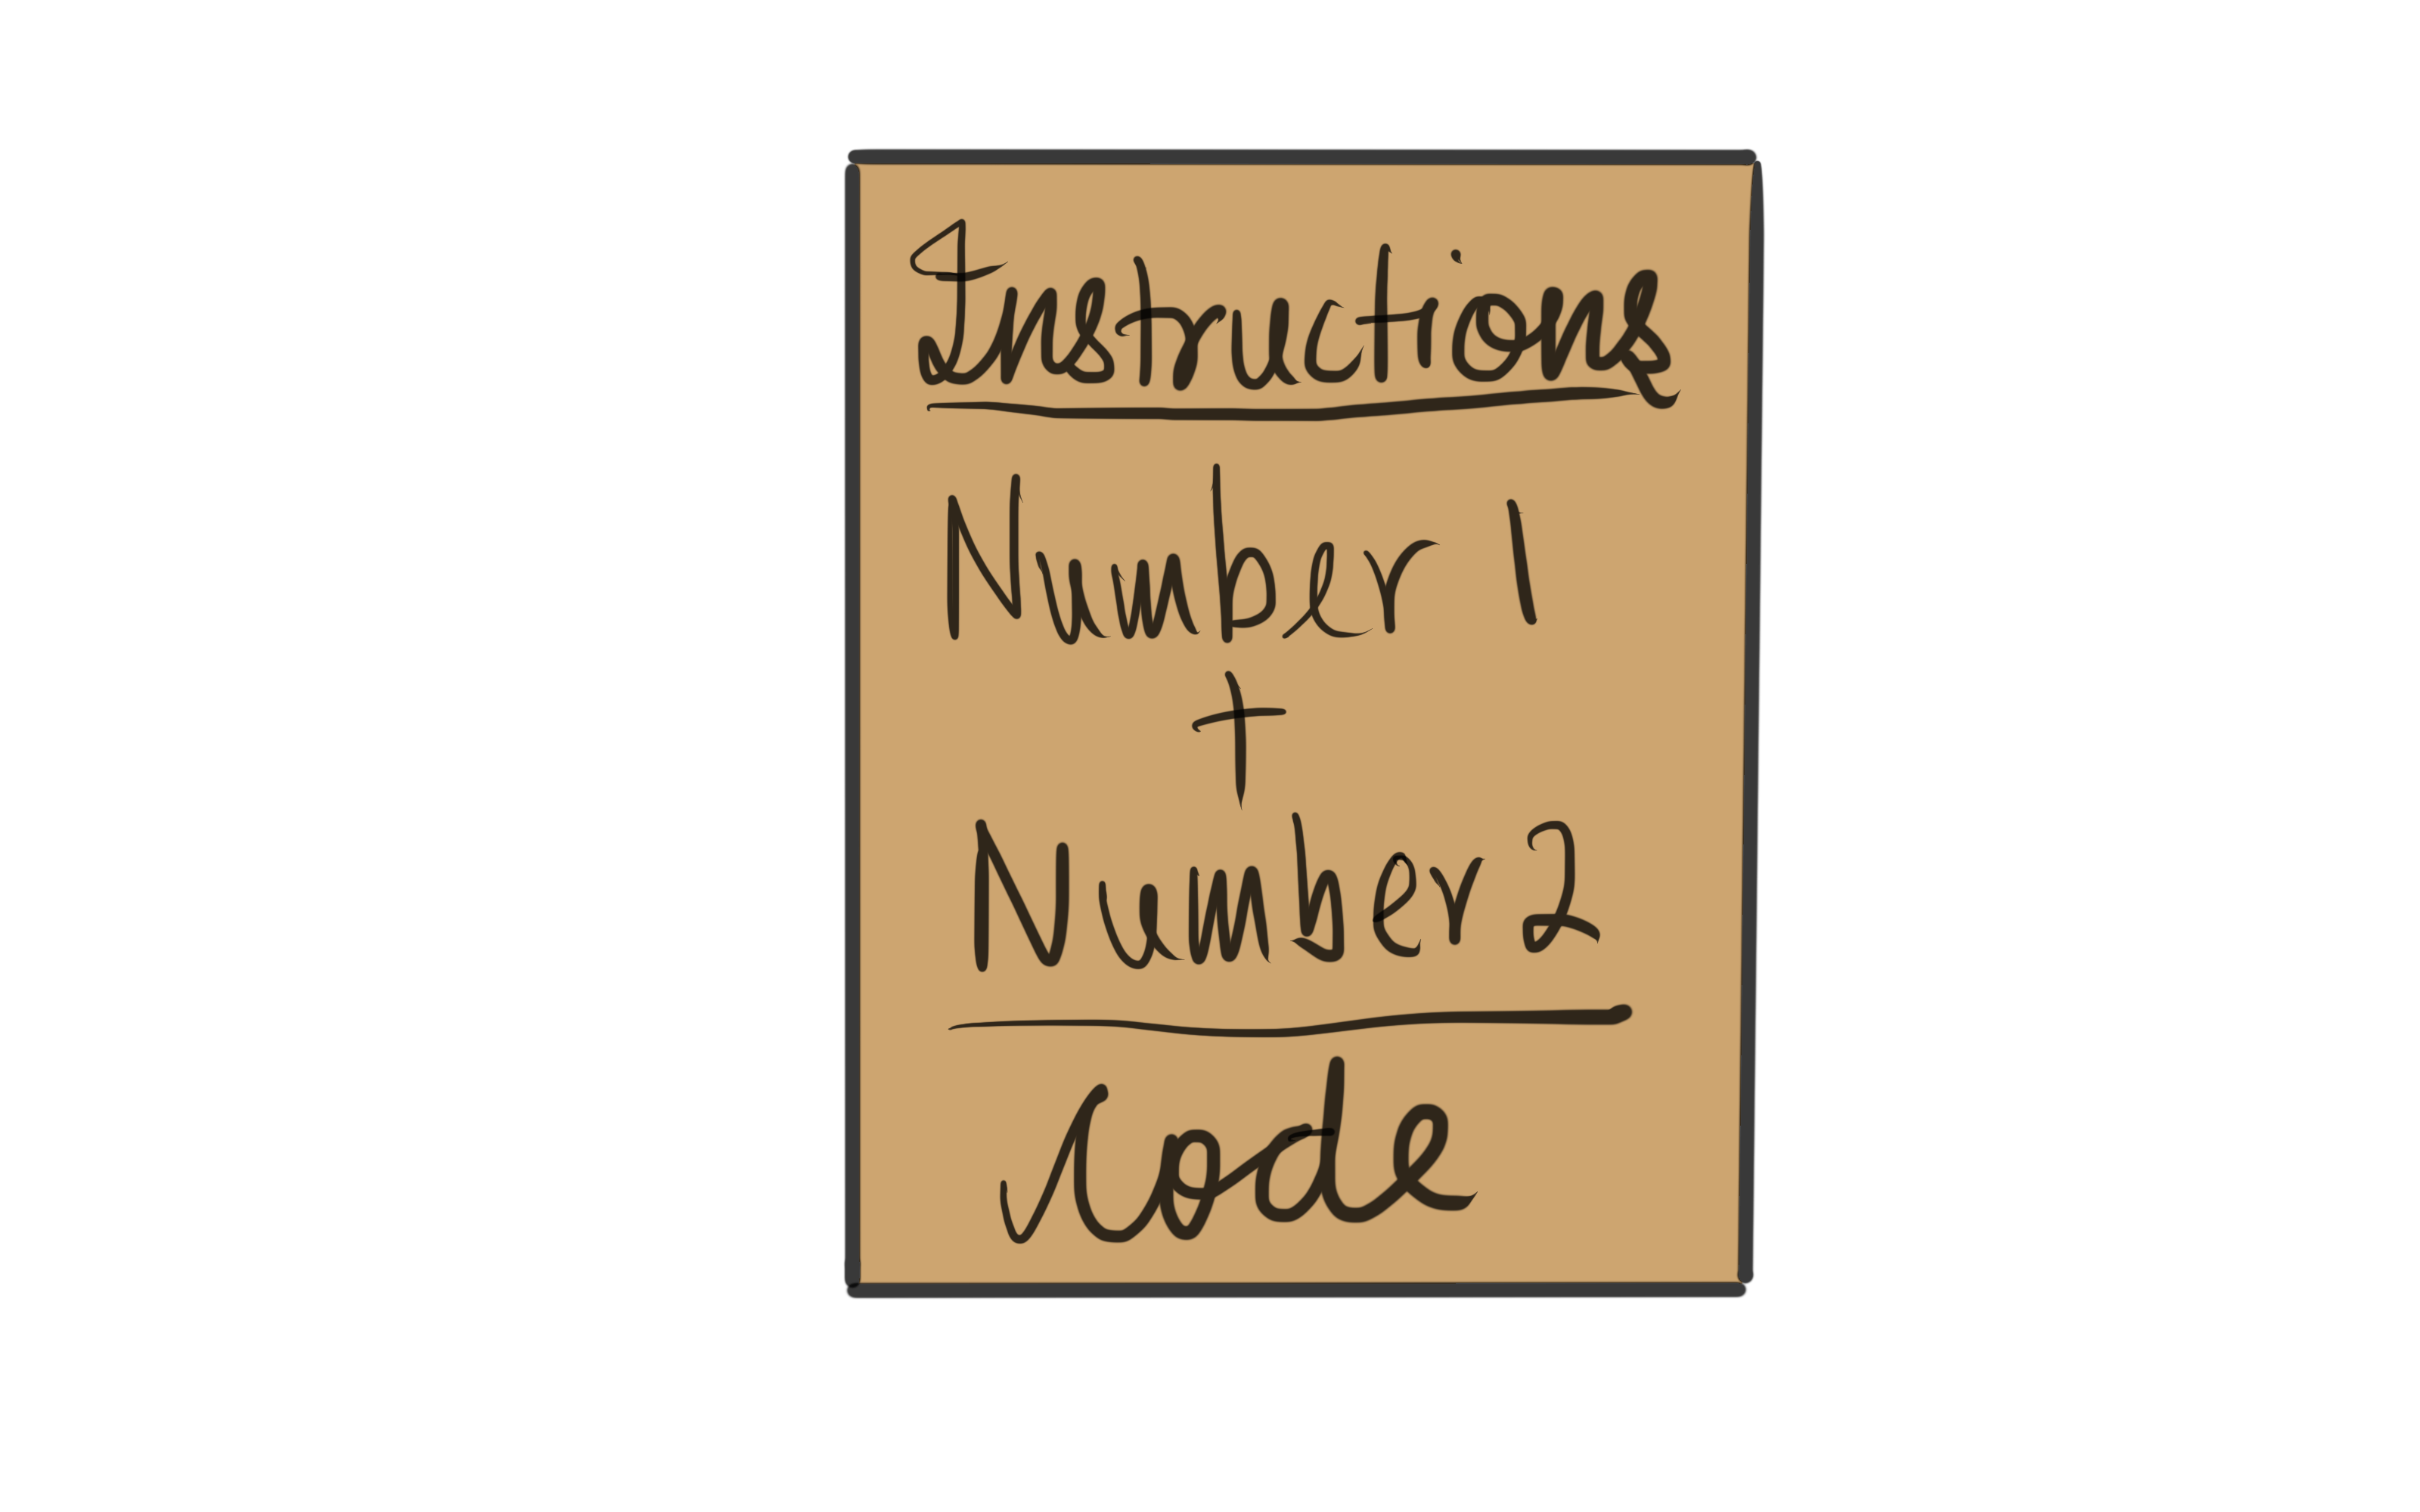 Instructions
Number 1
+
Number 2
Code